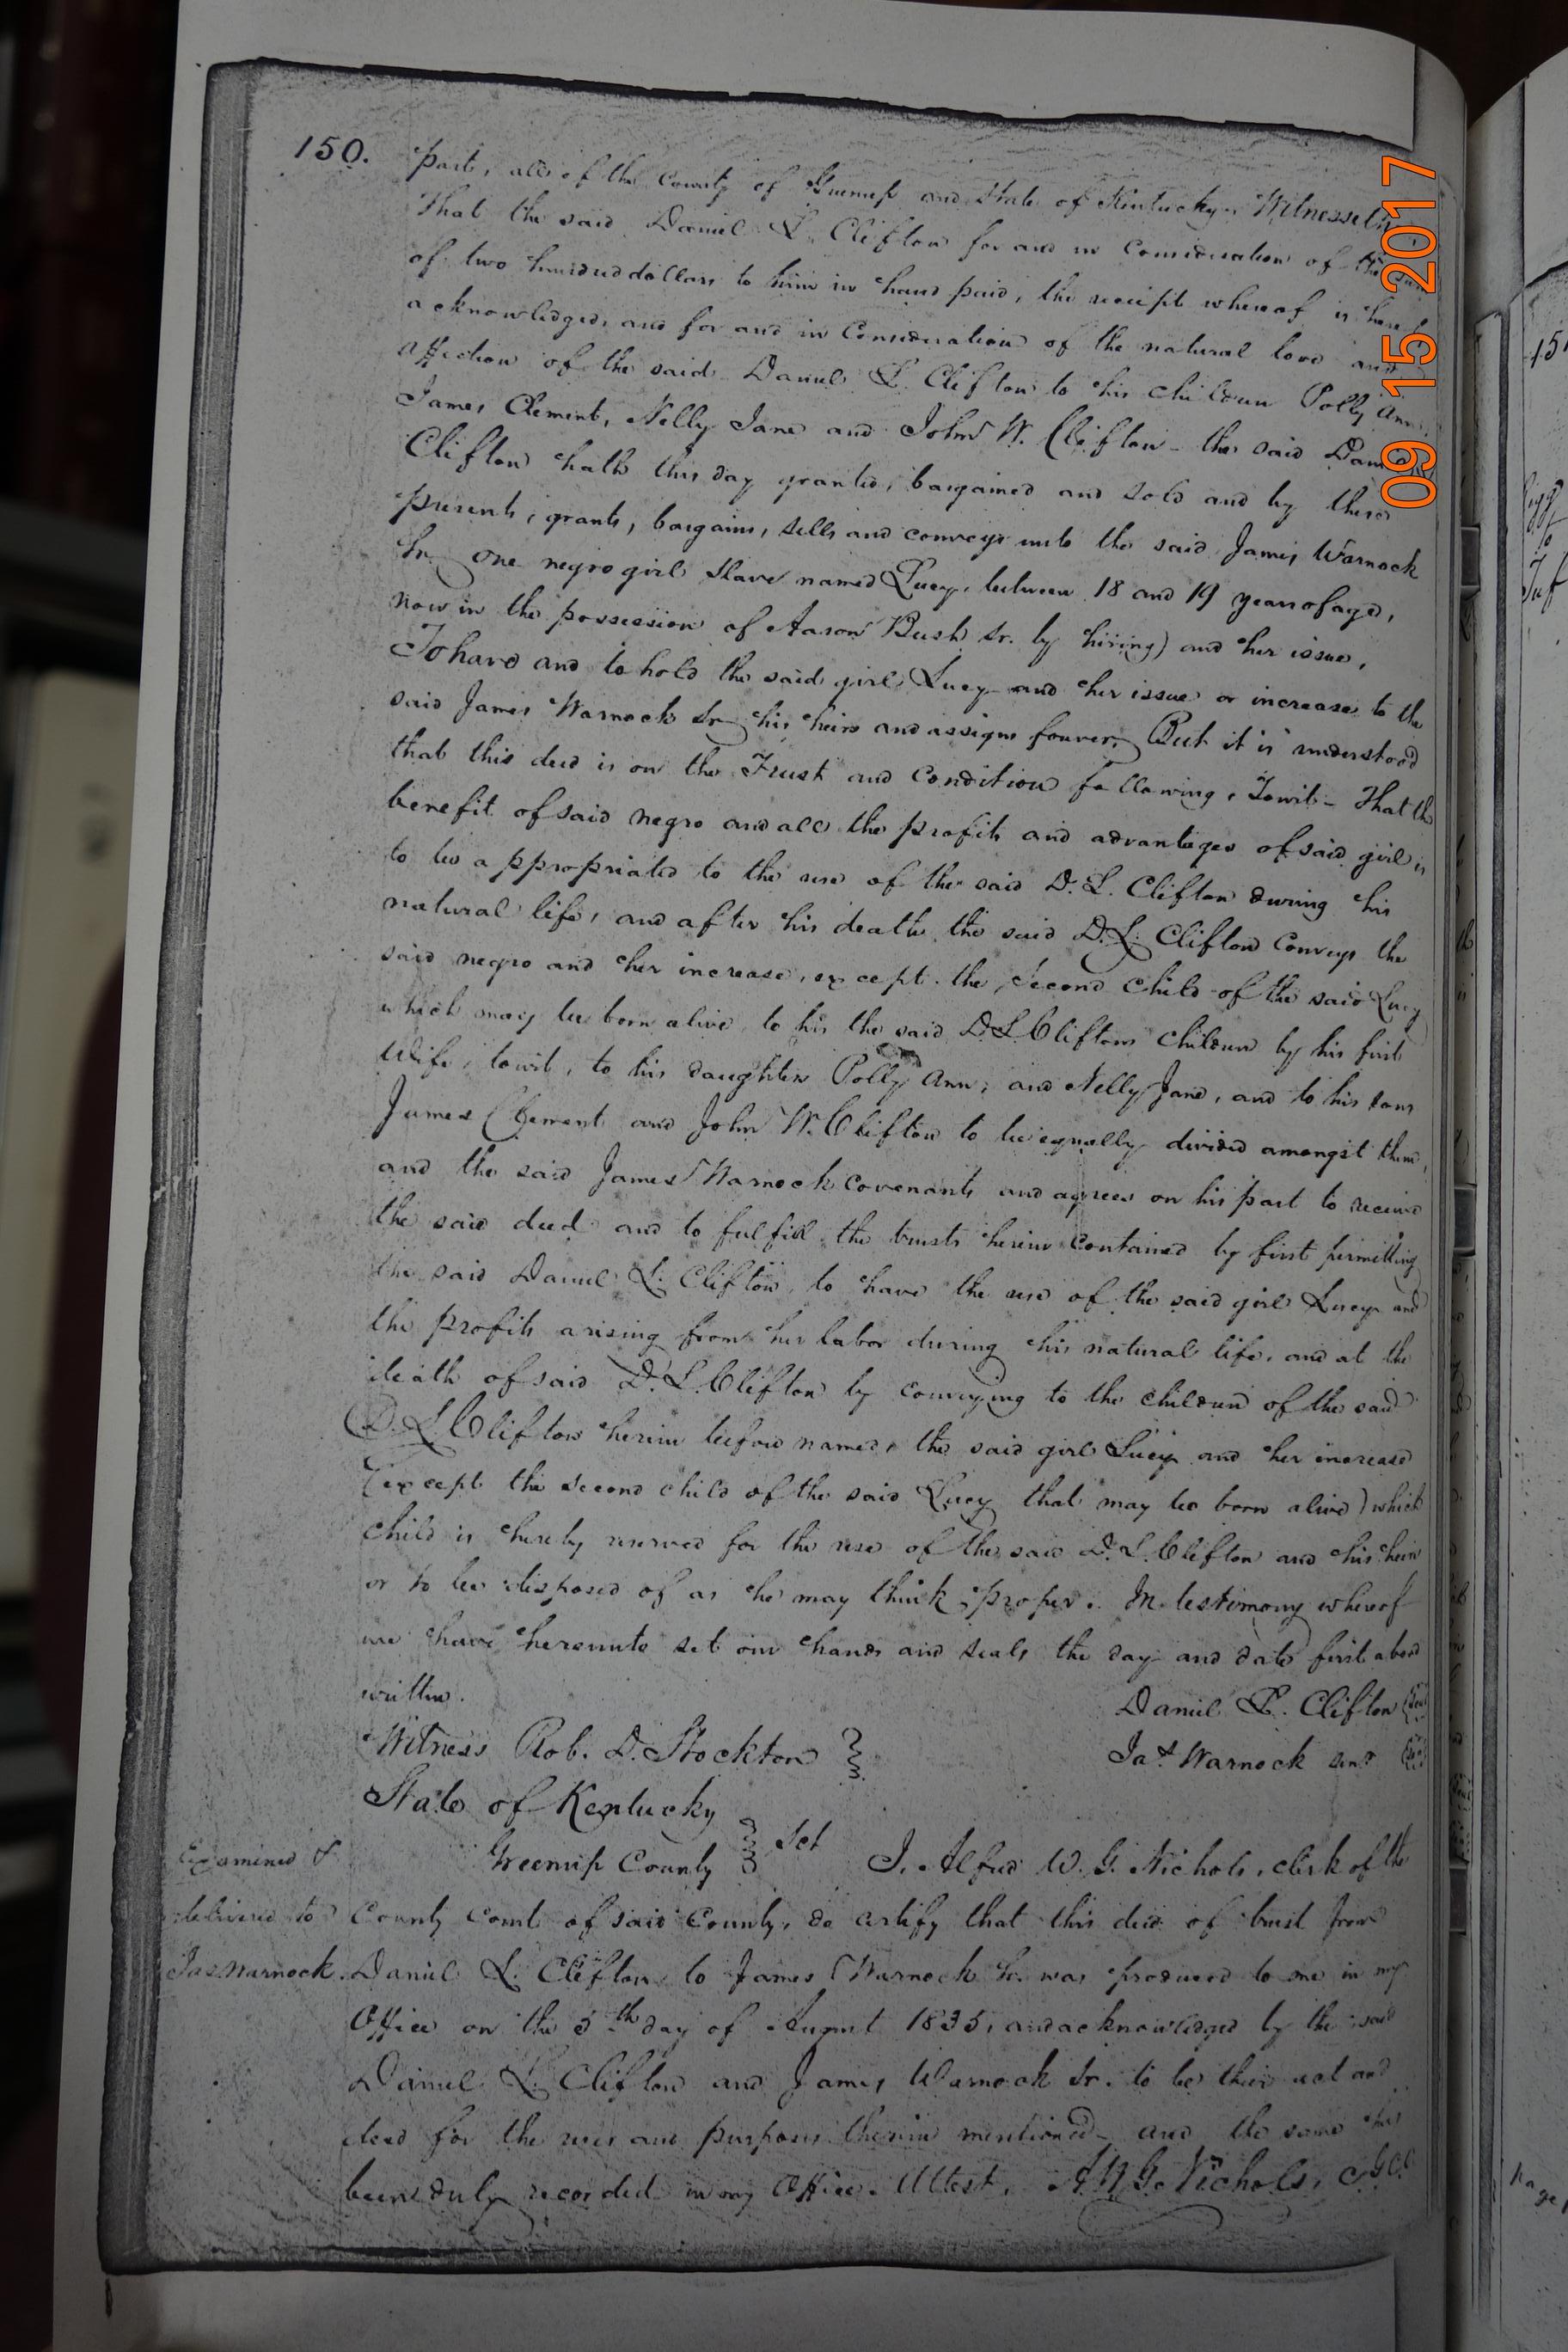 150.
part, all of the County of Greenup and State of Kentucky. Witnesseth,
That the said Daniel L. Clifton for and in Consideration of the sum
of two hundred dollars to him in hand paid, the receipt whereof is hereby
acknowledged, and for and in Consideration of the natural love and
affection of the said Daniel L. Clifton to his children Polly Ann,
James Clement, Nelly Jane and John W. Clifton - the said Daniel
Clifton hath this day granted, bargained and sold and by these
presents, grants, bargains, sells and conveys unto the said James Warnock
Sr. one negro girl Slave named Lucy, between 18 and 19 years of age,
now in the possession of Aaron Bush Sr. by hiring) and her issue,
To have and to hold the said girl Lucy and her issue or increase to the
said James Warnock Sr. his heirs and assigns forever, But it is understood
that this deed is on the Trust and Condition following, Towit - That the
benefit of said negro and all the profits and advantages of said girl is
to be appropriated to the use of the said D. L. Clifton during his
natural life, and after his death the said D. L. Clifton Conveys the
said negro and her increase, except the Second Child of the said Lucy
which may be born alive to his the said D L Cliftons Children by his first
Wife, towit, to his daughters Polly Ann, and Nelly Jane, and to his sons
James Clement and John W. Clifton to be equally divided amongst them,
and the said James Warnock Covenants and agrees on his part to receive
the said deed and to fulfill the trusts herein Contained by first permitting
the said Daniel L. Clifton to have the use of the said girl Lucy and
the profits arising from her labor during his natural life, and at the
death of said D. L. Clifton by conveying to the children of the said
D. L. Clifton herein before named, the said girl Lucy and her increase
(except the second child of the said Lucy that may be born alive) which
child is hereby reserved for the use of the said D. L. Clifton and his heirs
or to be disposed of as he may think proper. In testimony whereof
we have hereunto set our hands and seals the day and date first above
written.
Daniel L. Clifton (Seal)
Witness Rob. D. Stockton
Jas. Warnock senr (Seal)
State of Kentucky
Greenup County } Sct I, Alfred W. G. Nichols, clerk of the
County Court of said County, do certify that this deed of trust from
Daniel L. Clifton to James Warnock Sr. was produced to me in my
Office on the 5th day of August 1835, and acknowledged by the said
Daniel L. Clifton and James Warnock Sr. to be their act and
deed for the uses and purposes therein mentioned - and the same has
been duly recorded in my Office. Attest, A W G Nichols, C G C C
Examined &
delivered to
Jas Warnock.
09 15 2017